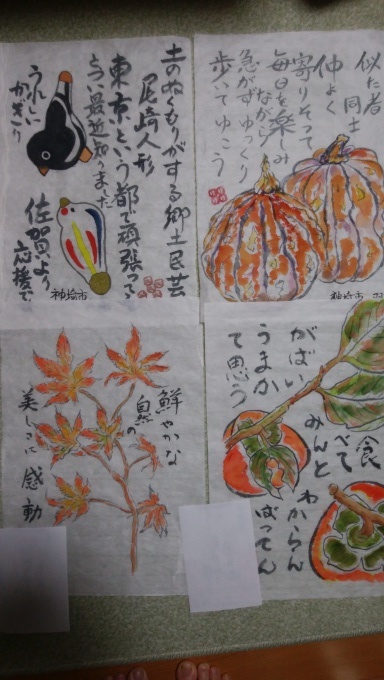 似た者
同士
仲よく
寄りそって
毎日を楽しみ
ながら
急がずゆっくり
歩いてゆこう
神埼市
土のぬくもりがする郷土民芸
尾崎人形
東京という都で頑張って
最近知りました
うれしい
かぎり
佐賀より
応援で
神埼市
食べて
みんと
わからん
ばってん
がばい
うまか
て思う
鮮やかな
自然の
美しさに 感動